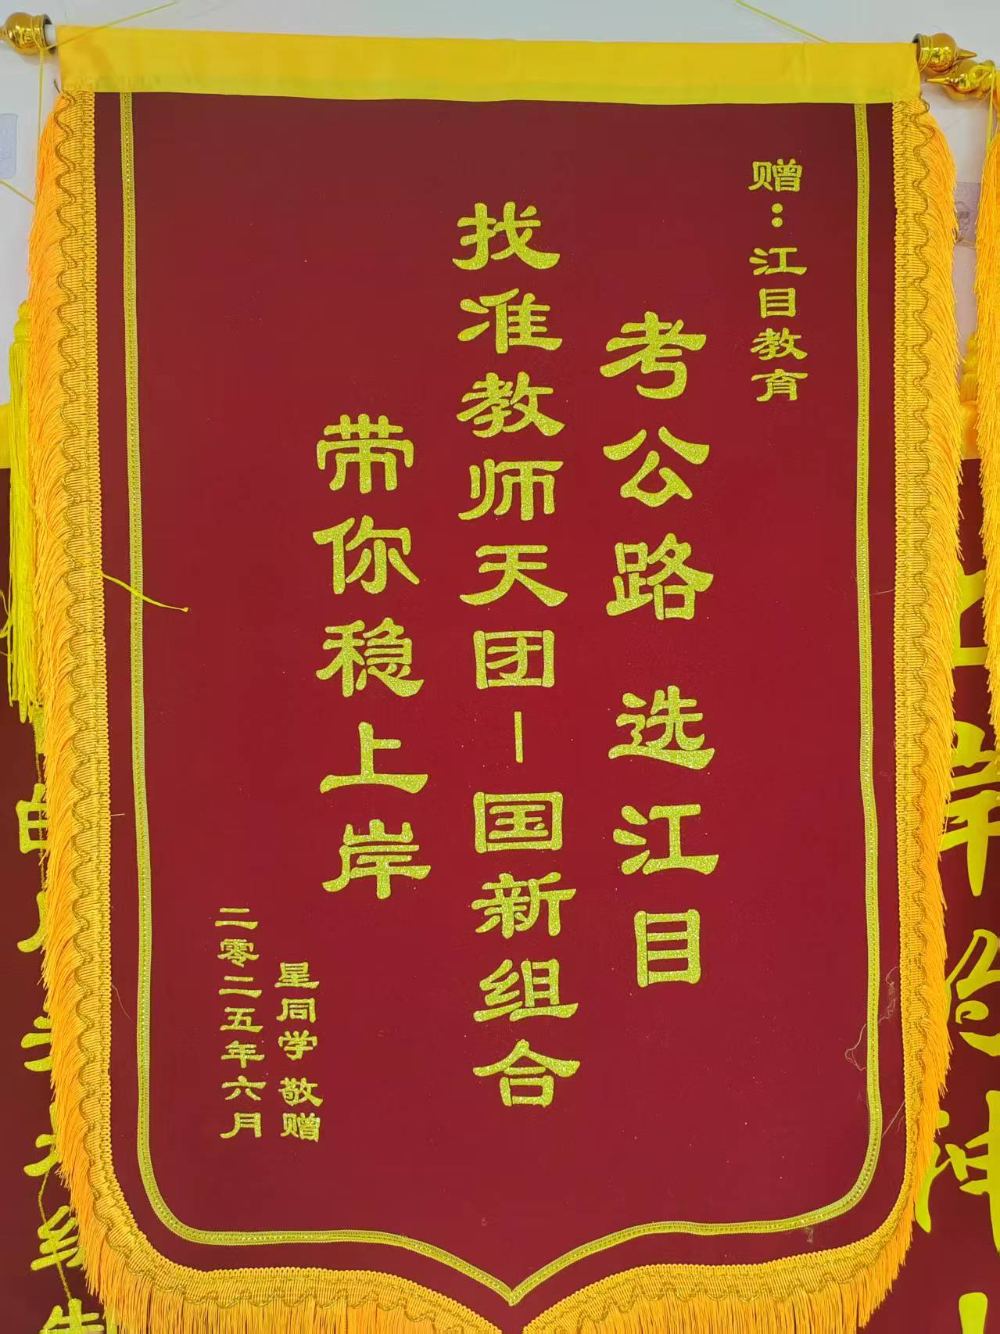 赠：江目教育
考公路 选江目
找准教师天团-国新组合
带你稳上岸
星同学 敬赠
二零二五年六月
上岸的神